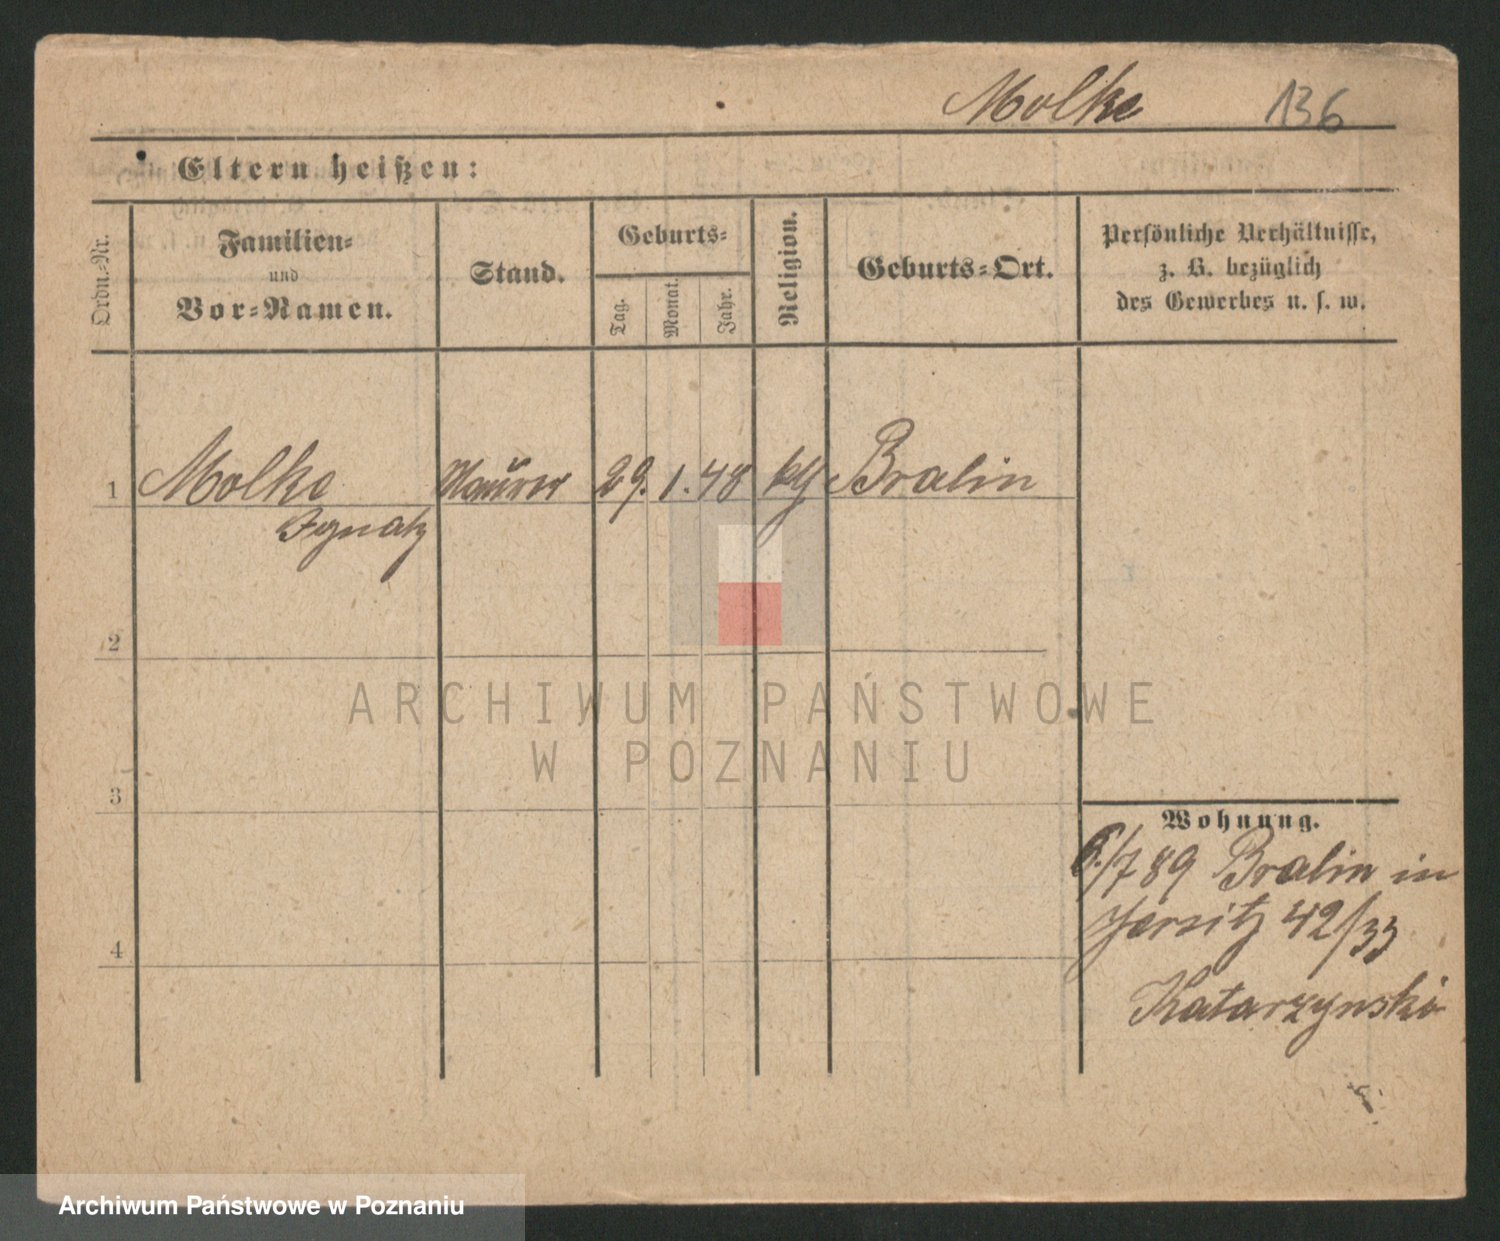 Molke 136
Eltern heißen:
Ordn.-Nr.
Familien-
und
Vor-Namen.
Stand.
Geburts-
Tag.
Monat.
Jahr.
Religion.
Geburts-Ort.
Persönliche Verhältnisse,
z. B. bezüglich
des Gewerbes u. s. w.
1 Molke Maurer 29. 1. 48 kth Bralin
Ignatz
2
3
4
ARCHIWUM PAŃSTWOWE
W POZNANIU
Wohnung.
6./7 89 Bralin in
Jersitz 42/33
Katarzynski
Archiwum Państwowe w Poznaniu